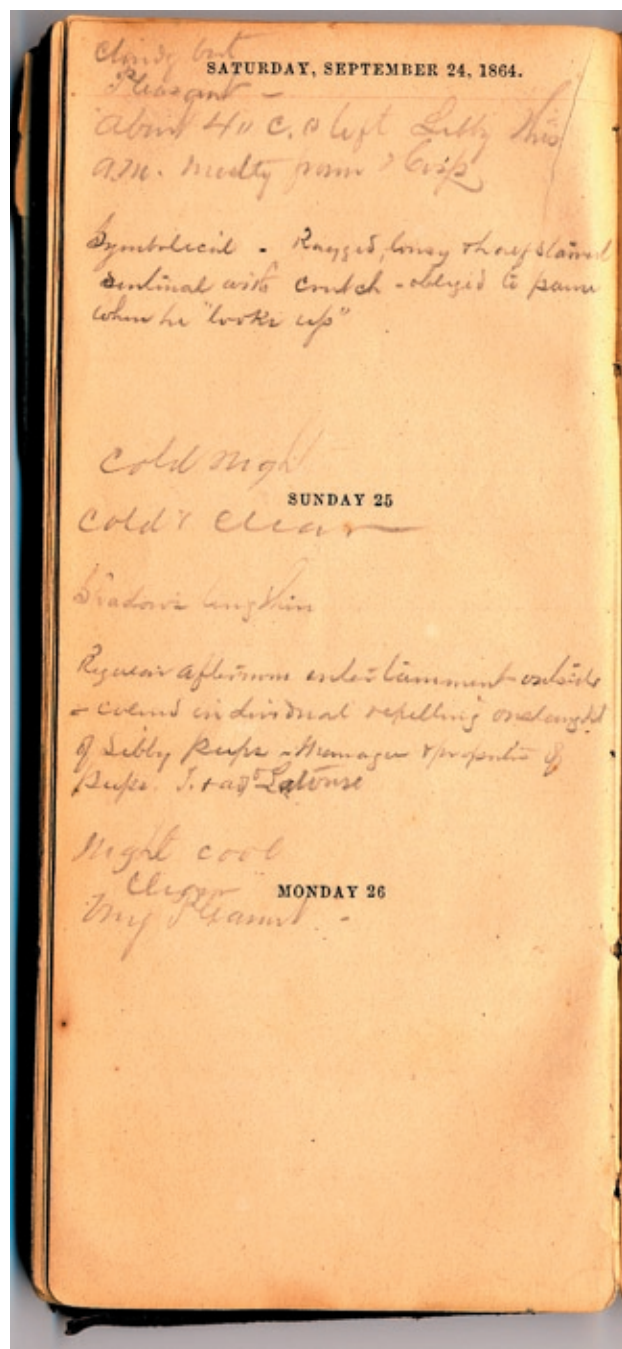 Cloudy but
SATURDAY, SEPTEMBER 24, 1864.
Pleasant -
About 40 C.O left Libby This
a.m. mostly from Hosp
Symbolical - Ragged, lousy & half starved
sentinal with crutch - obliged to pause
when he "looks up"
Cold night
SUNDAY 25
Cold & Clear
Shadows lengthin
Regular afternoon entertainment outside
- colored individual repelling onslaught
of Libby Pups - Manager & proprietor of
Pups.
Night cool
Clear
MONDAY 26
Very Pleasant -